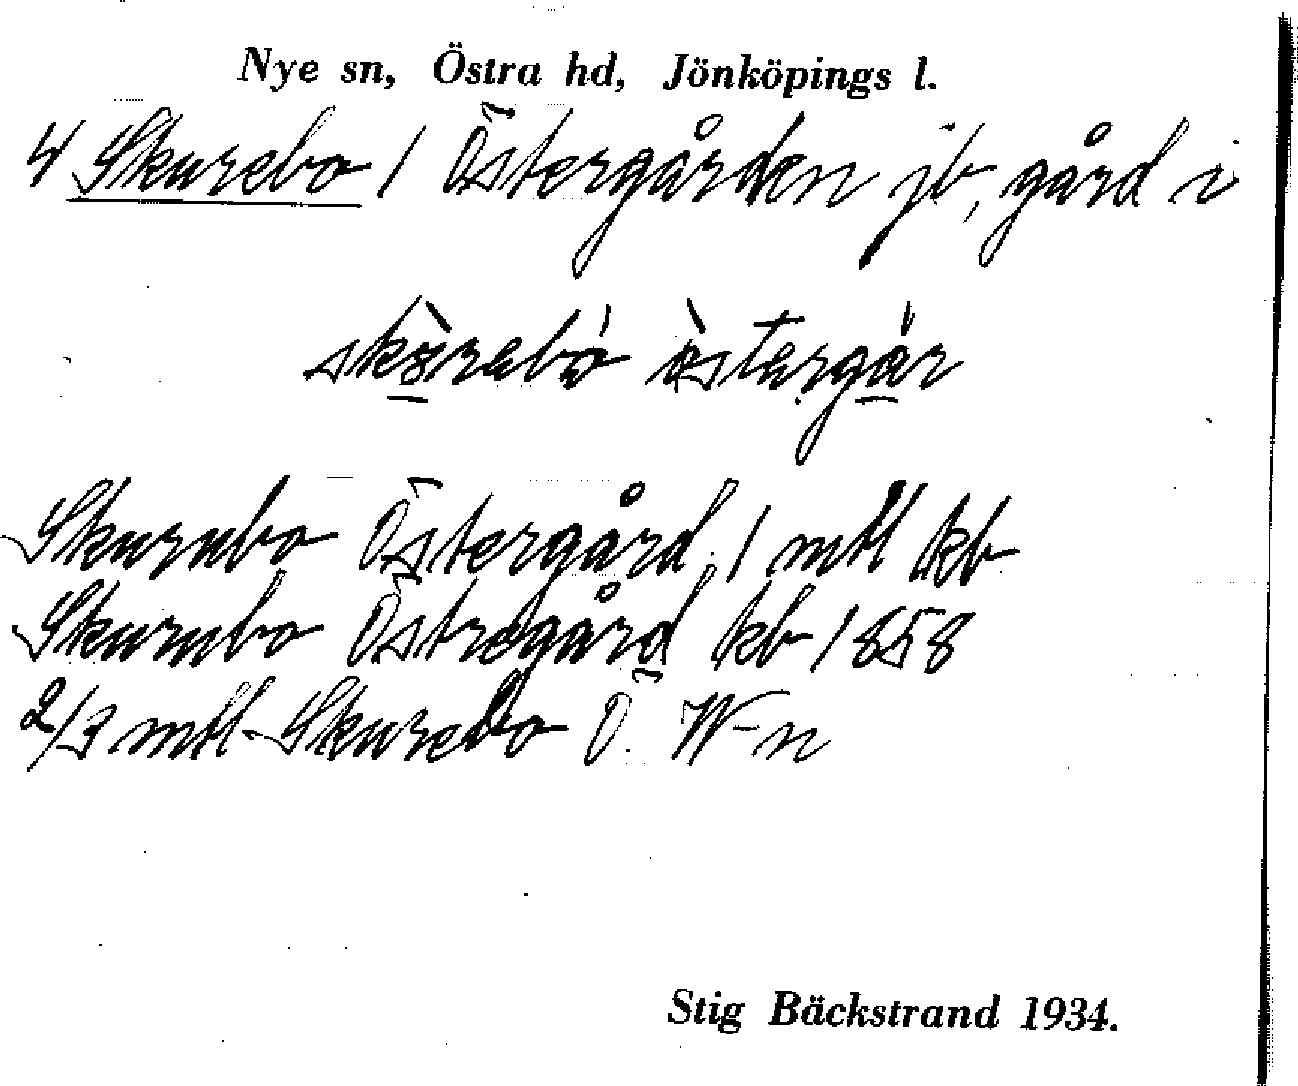 Nye sn, Östra hd, Jönköpings l.
4 Skurebo 1 Östergården jb, gård i
Skurubo Östergård, 1 mtl kb
Skurubo Östregård kb 1858
2/3 mtl Skurebo Ö. W-n
Stig Bäckstrand 1934.